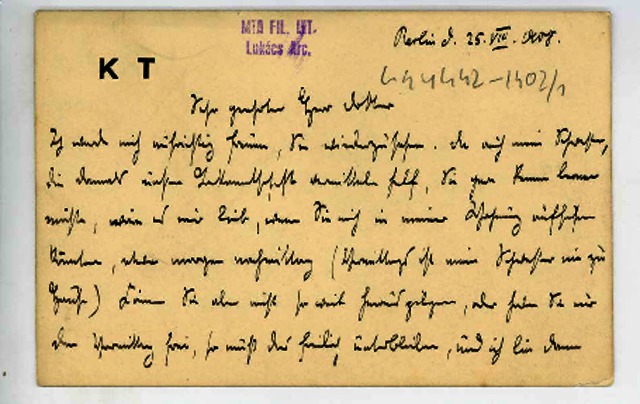 MTA FIL. INT.
Lukács Arc.
Berlin d. 25. VIII. 1908.
K T
Sehr geehrter Herr Doktor
Ich werde mich aufrichtig freuen, Sie wiederzusehen. Da auch meine Schwester,
die damals unsere Bekanntschaft vermitteln half, Sie gern kennen lernen
möchte, wäre es mir lieb, wenn Sie mich in meiner Wohnung aufsuchen
könnten, etwa morgen nachmittag (Vormittags ist meine Schwester nie zu
Hause) Können Sie aber nicht so weit herausgehen, oder haben Sie nur
den Vormittag frei, so muß das freilich unterbleiben, und ich bin dann